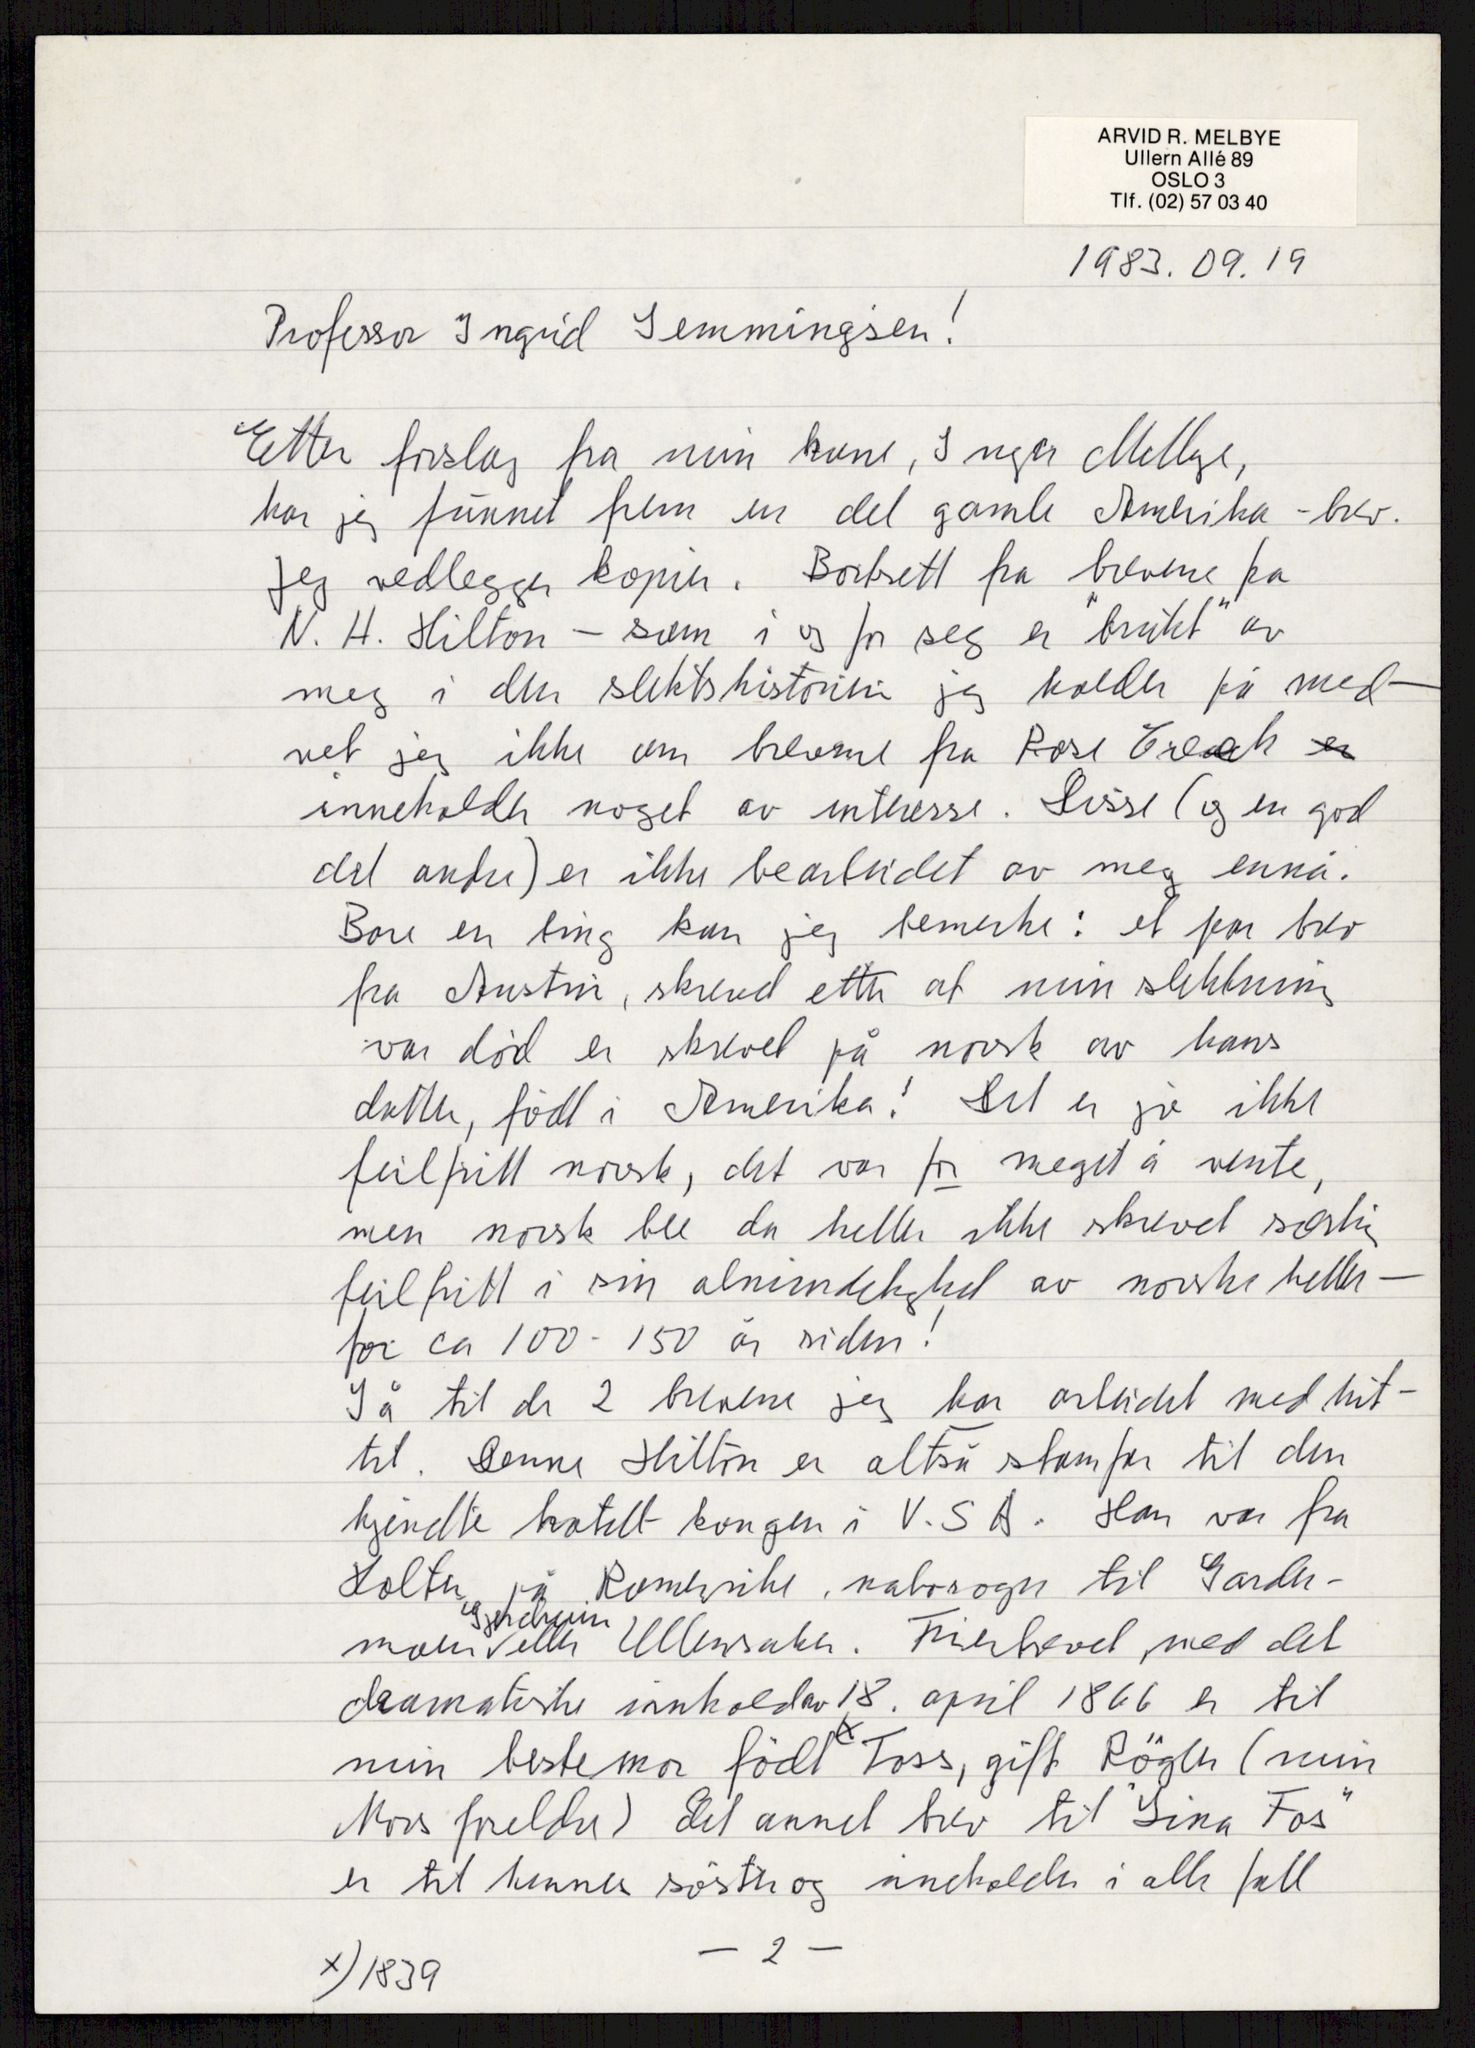 ARVID R. MELBYE
Ullern Allé 89
OSLO 3
Tlf. (02) 57 03 40
1983.09.19
Professor Ingrid Semmingsen!
Etter forslag fra min kone, Inger Melbye,
har jeg funnet frem en del gamle Amerika-brev.
Jeg vedlegger kopier. Bortsett fra brevene fra
N. H. Hilton – som i og for seg er "brukt" av
meg i den slektshistorien jeg holder på med –
vet jeg ikke om brevene fra Rose Creek
inneholder noget av interesse. Disse (og en god
del andre) er ikke bearbeidet av meg ennå.
Bare en ting kan jeg bemerke: et par brev
fra Austin, skrevd etter at min slektning
var död er skrevet på norsk av hans
datter, födt i Amerika! Det er jo ikke
feilfritt norsk, det var for meget å vente,
men norsk ble da heller ikke skrevet særlig
feilfritt i sin almindelighet av norske heller –
for ca 100-150 år siden!
Så til de 2 brevene jeg har arbeidet med hit-
til. Denne Hilton er altså stamfar til den
kjendte hotell-kongen i U.S.A. Han var fra
Holter på Romerike, nabosogn til Garder-
moen Gjerdrum eller Ullensaker. Frierbrevet, med det
dramatiske innhold av 18. april 1866 er til
min bestemor födt x Foss, gift Rögler (min
Mors foreldre) Det annet brev til "Sina Fos"
er til hennes söster og inneholder i alle fall
– 2 –
x) 1839